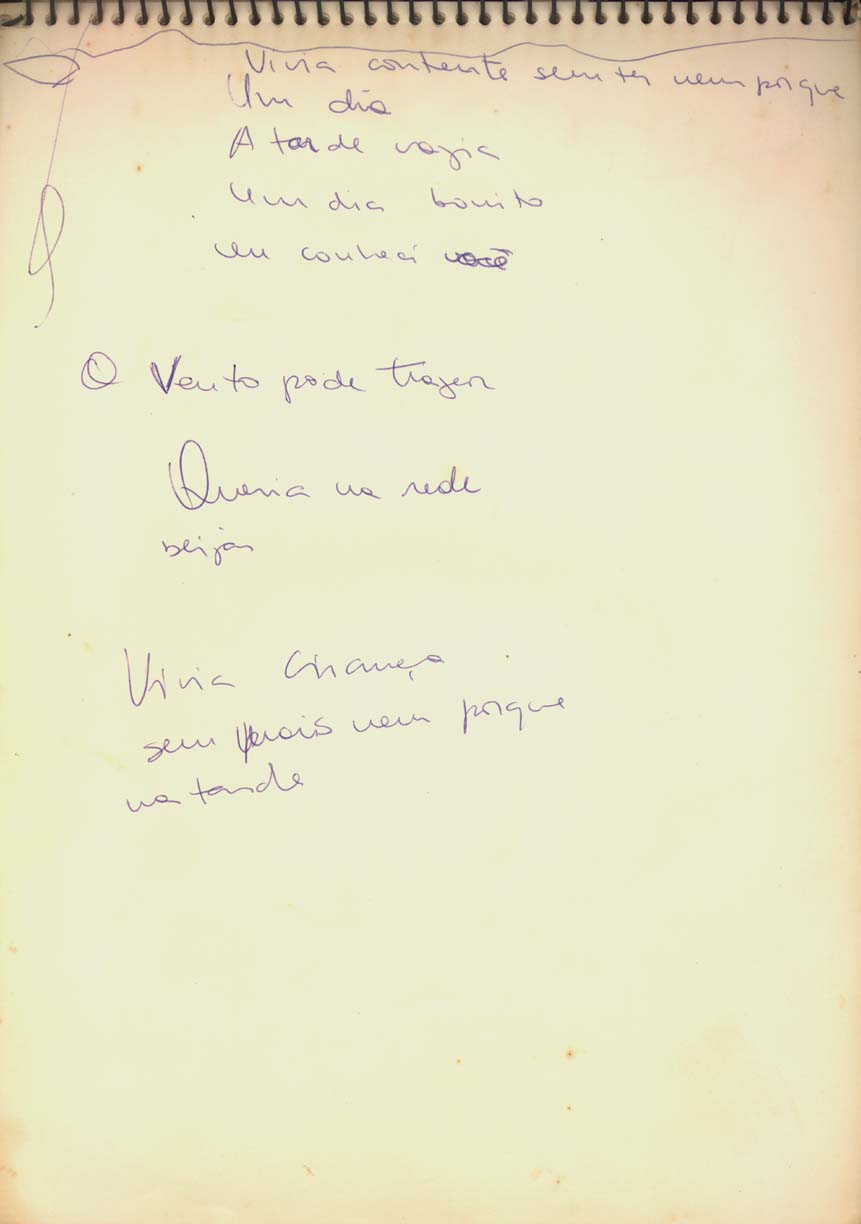 Vivia contente sem ter nem porque
Um dia
A tarde vazia
Um dia bonito
eu conheci você
O Vento pode trazer
Queria na rede
beijar
Vivia criança
sem mais nem porque
na tarde